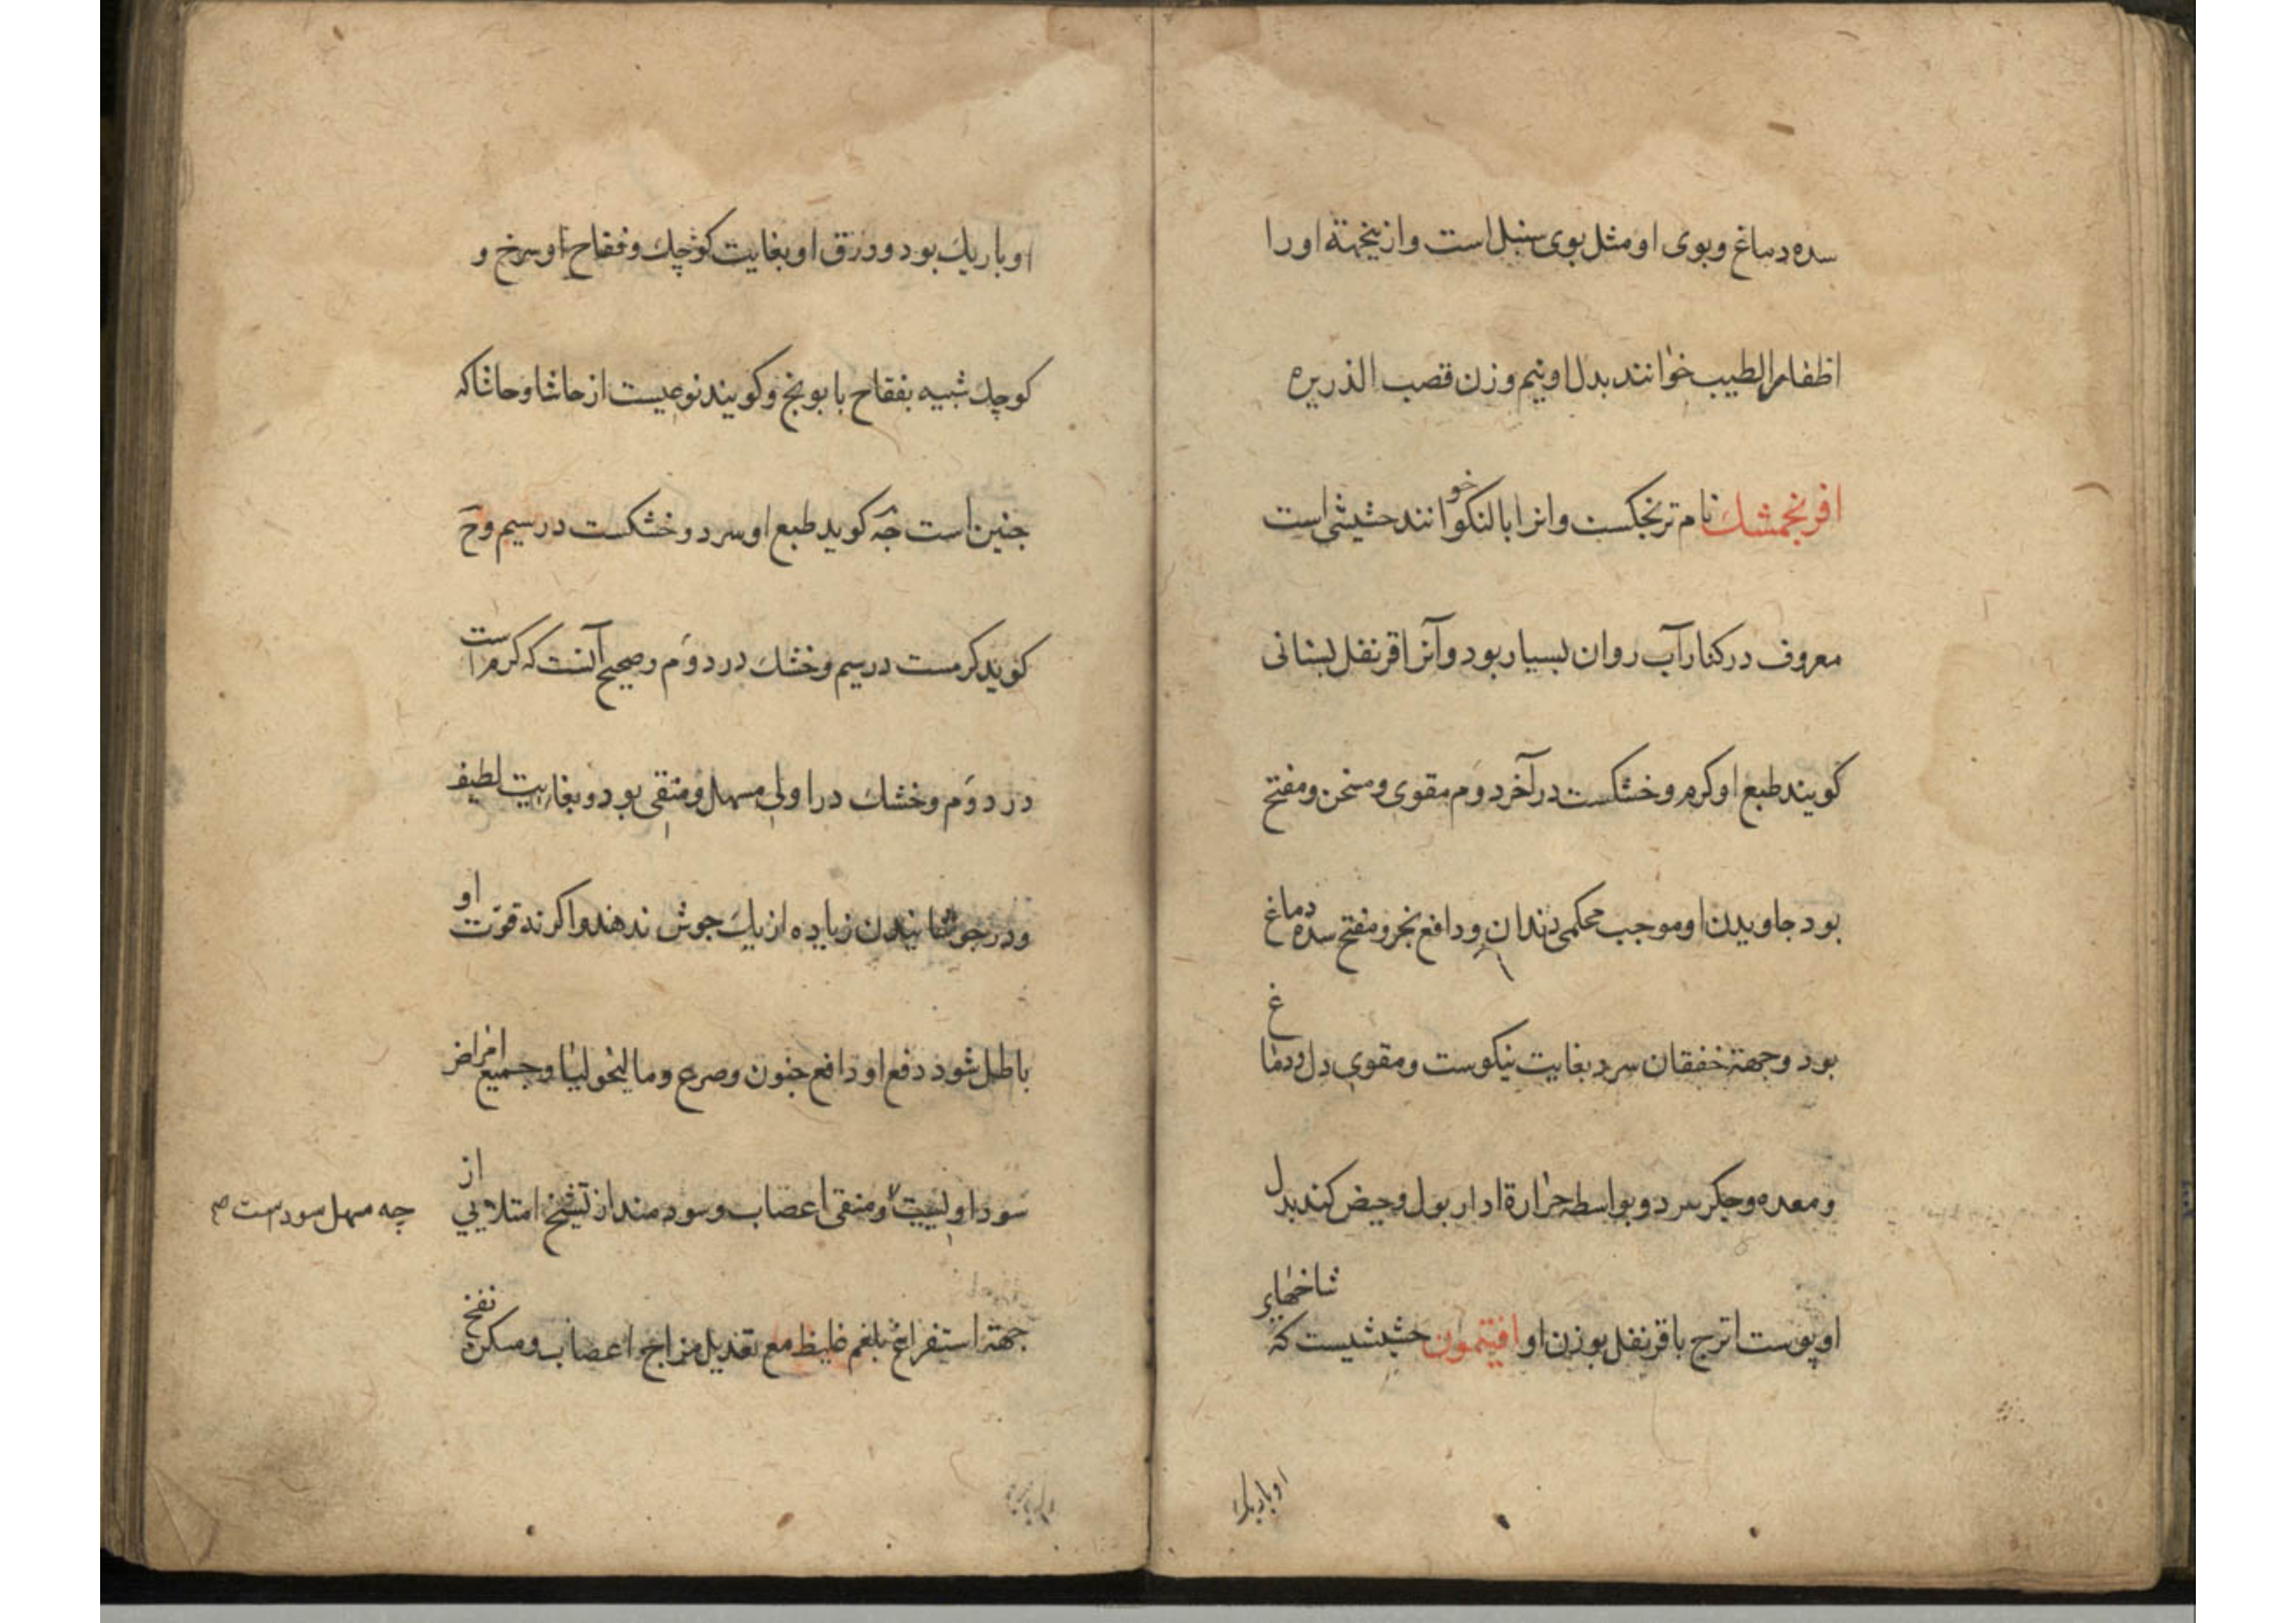 سده دماغ وبوی او مثل بوی سنبل است وازینجهة اورا
اظفار الطیب خوانند بدل او نیم وزن قصب الذریره
افرنجمشك نام ترنجكست وانرا بالنكو خوانند حشیشی است
معروف در كنار آب روان بسیار بود وآنرا قرنفل بستانی
كویند طبع او كرم وخشكست در آخر دوم مقوی ومسخن ومفتح
بود جاویدن او موجب محكمی دندان ودافع بخر ومفتح سده دماغ
بود وجهة خفقان سرد بغایت نیكوست ومقوی دل ودماغ
ومعده وجكر سرد وبواسطه حرارة ادار بول وحیض كند بدل
او پوست اترج با قرنفل بوزن او افیتمون حشیشیست كه شاخهای
او باریك
او باریك بود وورق او بغایت كوچك وفقاح او سرخ و
كوچك شبیه بفقاح بابونج وكویند نوعیست از حاشا وحاشا كه
جنین است جه كوید طبع او سرد وخشكست در سیم وح
كوید كرمست در سیم وخشك در دوم وصحیح آنست كه كرم است
در دوم وخشك در اولی مسهل ومنقی بود وبغایت لطیف
ودر جوشانیدن زیاده از یك جوش ندهند واكرنه قوت او
باطل شود دفع او دافع جنون وصرع ومالیخولیا وجمیع امراض
سوداویست ومنقی اعصاب وسودمند از تشنج امتلایی از
چه مسهل سوداست صح
جهة استفراغ بلغم غلیظ مع تعدیل مزاج اعصاب ومسكن نفخ